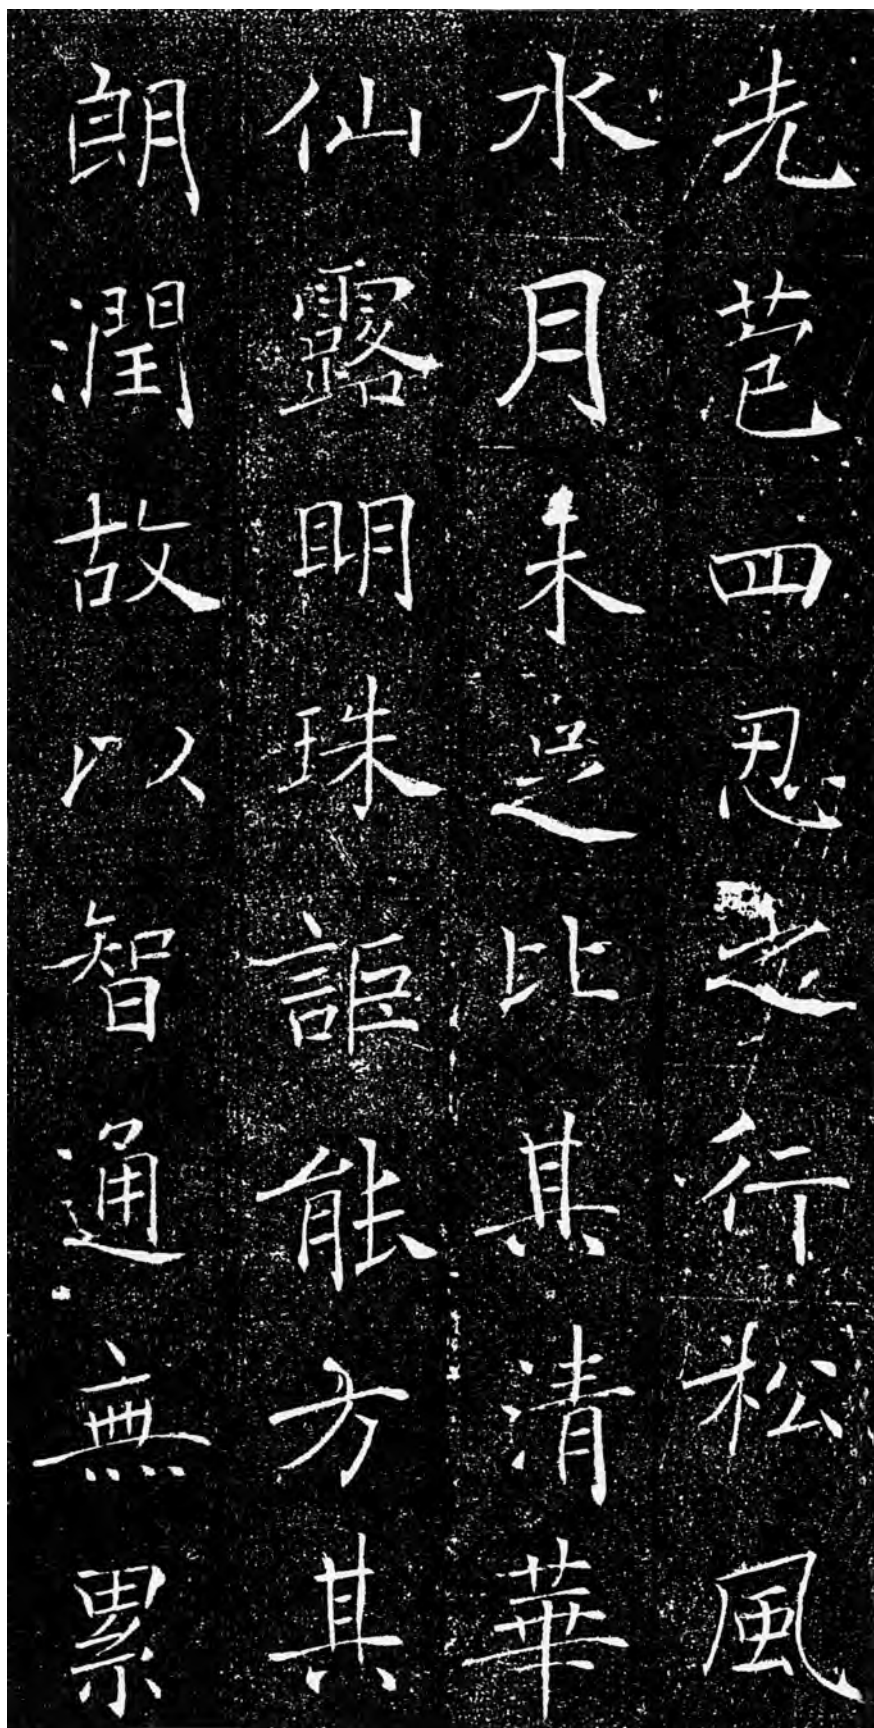 先苞四忍之行松風
水月未足比其清華
仙露明珠詎能方其
朗潤故以智通無累